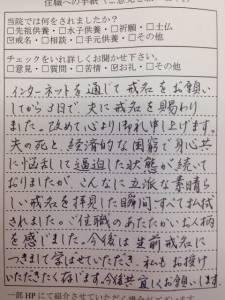 住職への手紙（ご意見
当院では何をされましたか？
□先祖供養・□水子供養・□祈願・□土仏
☑戒名・□相談・□手元供養・□その他
チェックをいれ詳しくお聞かせ下さい。
□意見・□質問・□苦情・☑お礼・□その他
インターネットを通じて戒名をお願い
してから3日で、夫に戒名を賜わり
ました。改めて心より御礼申し上げます。
夫の死と、経済的な困窮で身心共
に悩乱して逼迫した状態が続いて
おりましたが、こんなに立派な素晴ら
しい戒名を拝見した瞬間すべて払拭
されました。ご住職のあたたかいお人柄
を感じました。今後は生前戒名に
つきまして学ばせていただき、私もお授け
いただきたく存じます。今後共宜しくお願いします。
一部HPにて紹介させていただく場合がございます